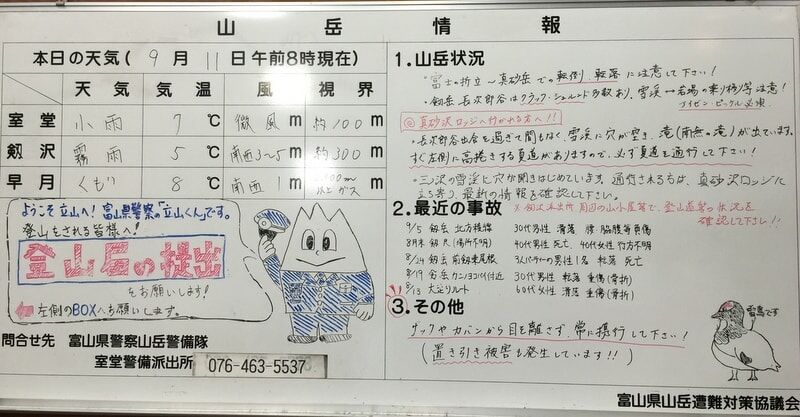 山岳情報
本日の天気(9月11日午前8時現在)
天気 気温 風 視界
室堂 小雨 7℃ 微風m 約100m
剱沢 霧雨 5℃ 南西3~5m 約300m
早月 くもり 8℃ 南西1m
ようこそ立山へ!富山県警察の「立山くん」です。
登山をされる皆様へ!
登山届の提出
をお願いします!
左側のBOXへお願いします。
問合せ先 富山県警察山岳警備隊
室堂警備派出所 076-463-5537
1.山岳状況
・富士の折立~真砂岳での転倒、転落に注意して下さい!
・剱岳 長次郎谷はクラック・シュルンド多数あり、雪渓↔岩場の乗り移り等注意!
アイゼン・ピッケル必携
◎真砂沢ロッジへ行かれる方へ!!
・長次郎谷出合を過ぎて間もなく、雪渓に穴が空き、滝(南無の滝)が出ています。
すぐ左側に高捲きする夏道がありますので、必ず夏道を通行して下さい!
・三沢の雪渓に穴が開きはじめています。通行される方は、真砂沢ロッジに
立ち寄り、最新の情報を確認して下さい。
2.最近の事故
※剱沢派出所、周囲の山小屋等で、登山道等の状況を
確認して下さい!!
9/5 剱岳 北方稜線 30代男性 滑落 腰 脇腹等負傷
8月末 剱沢(場所不明) 40代男性 死亡、40代女性 行方不明
8/24 剱岳 前剱東尾根 3人パーティーの男性1名 転落 死亡
8/19 剱岳 カニノヨコバイ付近 30代男性 転落 重傷(骨折)
8/13 大辺りルート 60代女性 滑落 重傷(骨折)
3.その他
サックやカバンから目を離さず、常に携行して下さい!
(置き引き被害も発生しています!!)
雷鳥です
富山県山岳遭難対策協議会